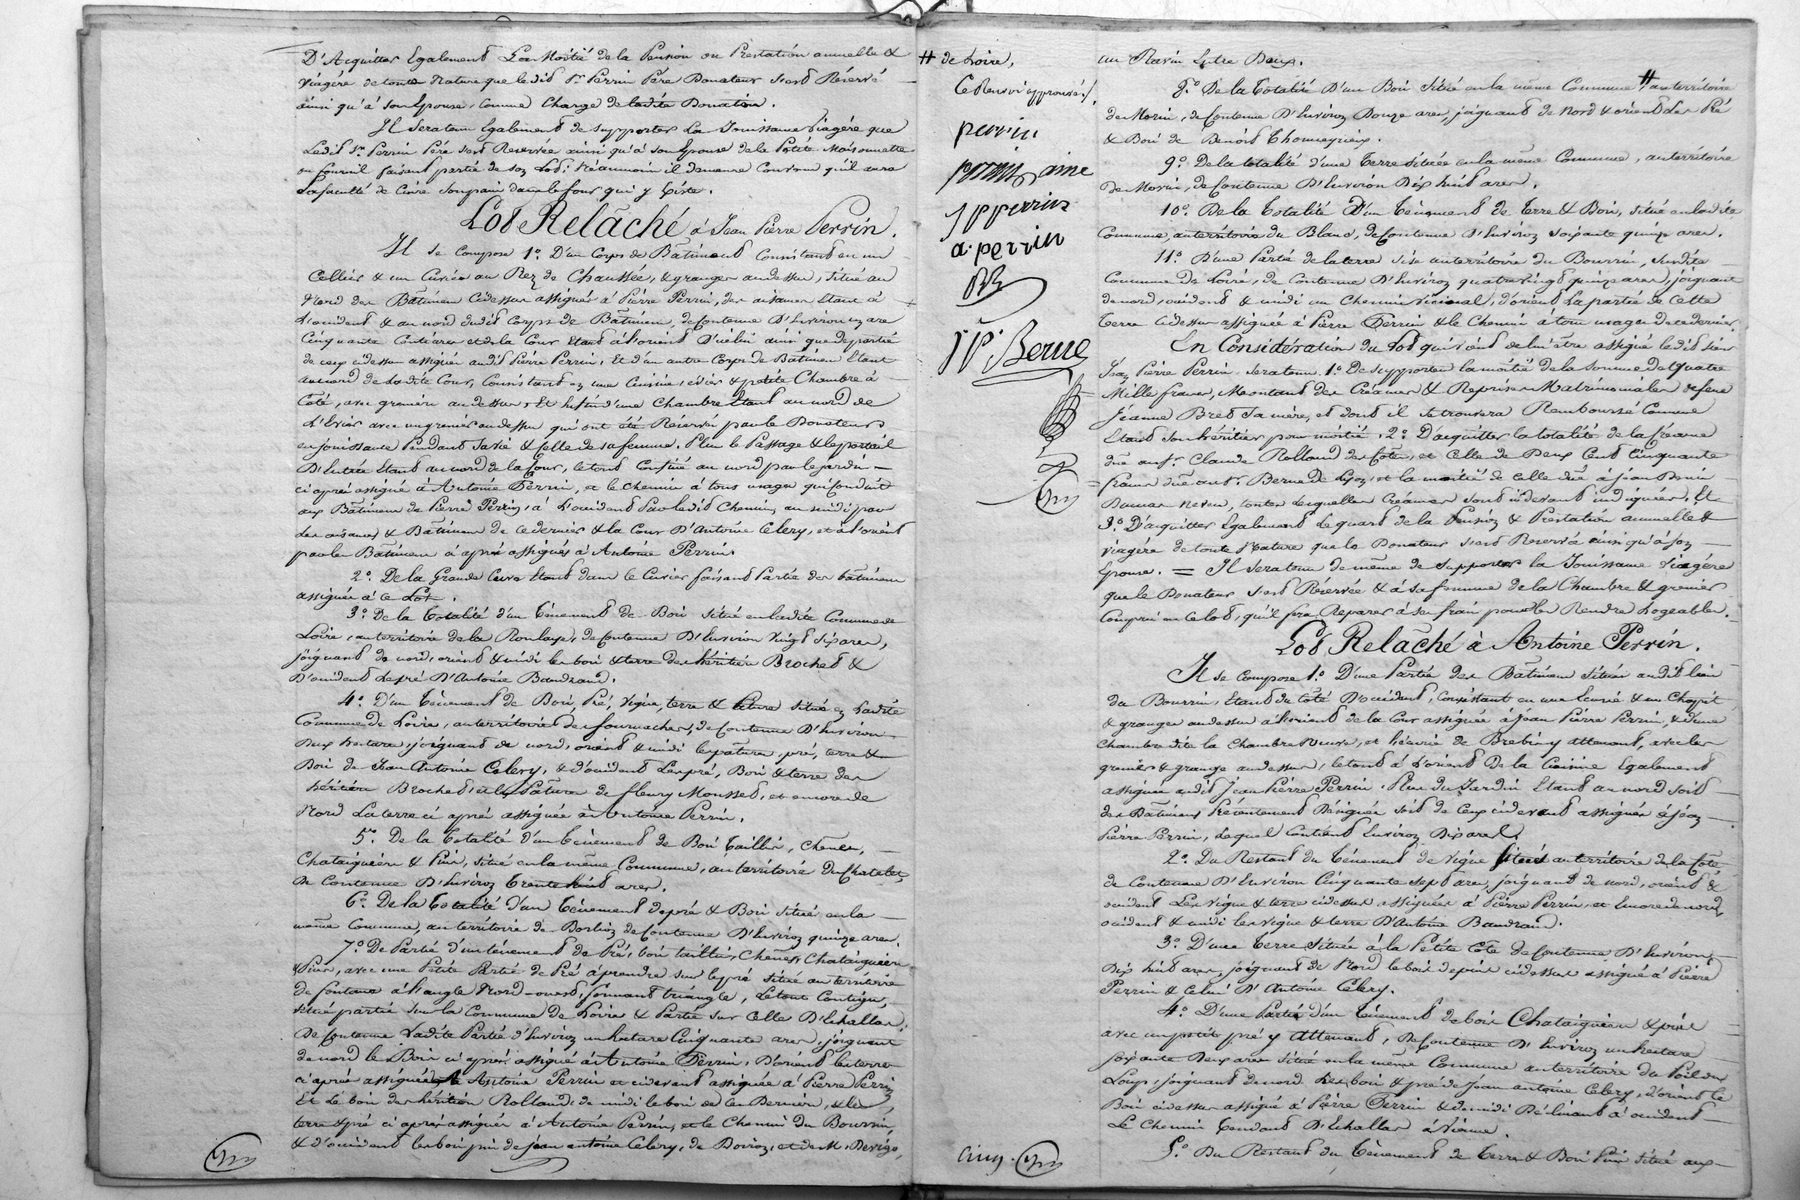 D'Acquitter Egalement La Moitié de la Pension ou Prestation annuelle &
viagère de toute Nature que ledit Sr. Perrin Père Donateur s'est Réservé
ainsi qu'à son Epouse, comme Charge de ladite Donation.
Il sera tenu Egalement de supporter la Jouissance viagère que
Ledit Sr. Perrin Père s'est Réservée ainsi qu'à son Epouse de la Petite Maisonnette
ou fournil faisant partie de son Lot; Néanmoins il demeure Convenu qu'il aura
la faculté de Cuire son pain dans le four qui y Existe.
Lot Relâché à Jean Pierre Perrin.
Il se Compose 1o. D'un Corps de Bâtiment Consistant en un
Cellier & un Cuvier au Rez de Chaussée, & granges au dessus, situé au
Nord des Bâtimens Cidessus assignés à Pierre Perrin, des aisances Etant à
L'occident & au nord dudit Corps de Bâtimens, de Contenue D'Environ un are
Cinquante Centiares et de la Cour Etant à L'orient D'icelui ainsi que de partie
de ceux cidessus assignés audit Pierre Perrin; Et d'un autre Corps de Bâtimens Etant
au nord de ladite Cour, Consistant en une Cuisine, évier & petite Chambre à
Côté, avec greniers au dessus; Et enfin d'une Chambre Etant au nord de
L'Evier avec un grenier au dessus qui ont été Réservés par le Donateur
en jouissance Pendant sa vie & Celle de sa femme. Plus le Passage & le portail
D'Entrée Etant au nord de la Cour, le tout Confiné au nord par le jardin
ci après assigné à Antoine Perrin, et le Chemin à tous usages qui Conduit
aux Bâtimens de Pierre Perrin, à L'occident Par ledit Chemin, au midi par
Les aisances & Bâtimens de ce dernier & la Cour D'Antoine Celery, et à l'orient
par les Bâtimens ci après assignés à Antoine Perrin.
2o. De la Grande Cuve Etant dans le Cuvier faisant Partie des bâtimens
assignés à ce Lot.
3o. De la Totalité d'un Ténement de Bois situé en ladite Commune de
Loire, au territoire de la Roulaye, de Contenue D'Environ Vingt six ares,
joignant de nord, orient & midi les bois & terre des héritiers Brochet &
D'occident Le pré D'Antoine Bandrand.
4o. D'un Ténement de Bois, Pré, Vigne, terre & Pâture situé en Ladite
Commune de Loire, au territoire des fournaches, de Contenue D'Environ
Deux hectares, joignant de nord, orient & midi les pâture, pré, terre &
Bois de Jean Antoine Celery, & d'occident Les pré, Bois & terre des
héritiers Brochet, et les Pâtures de fleury Mousset, et encore de
Nord La terre ci après assignée à Antoine Perrin.
5o. De la Totalité d'un Ténement de Bois Taillis, Chênes,
Chataigniers & Pins, situé en la même Commune, au territoire du Chatelet,
De Contenue D'Environ Trente huit ares.
6o. De la Totalité d'un Ténement de pré & Bois situé en la
même Commune, au territoire de Borlion, de Contenue D'Environ quinze ares.
7o. De Partie d'un ténement de Pré, bois taillis, Chênes, Chataigniers
& Pins, avec une Petite Partie de Pré à prendre sur le pré situé au territoire
de fontane à L'angle Nord-ouest, formant triangle, Le tout Contigu,
situé partie sur la Commune de Loire & Partie sur Celle D'Echallas,
De Contenue Ladite Partie d'Environ un hectare Cinquante ares, joignant
de nord les Bois ci après assignés à Antoine Perrin, D'orient les terres
ci après assignées à Antoine Perrin et cidevant assignée à Pierre Perrin
Et Le bois des héritiers Rolland, de midi le bois de ces Derniers, & les
terre & pré ci après assignés à Antoine Perrin, et le Chemin du Bourrin,
& d'occident les bois pins de jean antoine Celery, de Boiron, et de M. Devigo,
# de Loire,
Ce Renvoi approuvé./.
perrin
perrin ainé
J P perrin
a. perrin
J P. Berne
cinq.
un Ravin Entre Deux.
8o. De la Totalité D'un Bois situé en la même Commune # au territoire
de Morin, de Contenue D'Environ Douze ares, joignant de Nord & orient Les Pré
& Bois de Benoit Thomeyrieux.
9o. De la totalité d'une Terre située en la même Commune, au territoire
de Morin, de Contenue D'Environ Dix huit ares.
10o. De la Totalité D'un Ténement de Terre & Bois, situé en ladite
Commune, au territoire du Blanc, de Contenue D'Environ soixante quinze ares.
11o. D'une Partie de la terre sise au territoire du Bourrin, susdite
Commune de Loire, de Contenue D'Environ quatre vingt quinze ares, joignant
de nord, occident & midi un Chemin vicinal, d'orient La partie de Cette
Terre cidessus assignée à Pierre Perrin & le Chemin à tous usages de ce dernier
En Considération du Lot qui vient de lui être assigné ledit sieur
Jean Pierre Perrin sera tenu 1o. De supporter la moitié de la somme de Quatre
Mille francs, Montant des Créances & Reprises Matrimoniales de feue
Jeanne Bret sa mère, et dont il se trouvera Remboursé Comme
Etant son héritier pour moitié. 2o. D'acquitter la totalité de la Créance
due au Sr. Claude Rolland des Côtes, et Celle de Deux Cent Cinquante
francs due au Sr. Berne de Lyon, et la moitié de celle due à Jean Denis
Dumas Neveu, toutes lesquelles Créances sont cidevant indiquées. Et
3o. D'acquitter Egalement le quart de la Pension & Prestation annuelle &
viagère de toute Nature que le Donateur s'est Réservé ainsi qu'à son
Epouse. = Il sera tenu de même de supporter la Jouissance viagère
que le Donateur s'est Réservée & à sa femme de la Chambre & grenier
Compris en ce lot, qu'il fera Réparer à ses frais pour les Rendre Logeables.
Lot Relâché à Antoine Perrin.
Il se Compose 1o. D'une Partie des Bâtimens situés audit lieu
du Bourrin, Etant du Côté D'occident, Consistant en une Ecurie & un Chapit
& granges au dessus à L'orient de la Cour assignée à Jean Pierre Perrin, & d'une
Chambre dite la Chambre Neuve, et L'écurie de Brebis y attenant, avec les
greniers & grange au dessus, le tout à L'orient De la Cuisine Egalement
assignée audit Jean Pierre Perrin. Plus du Jardin Etant au nord soit
des Bâtimens Présentement Désignés soit de Ceux cidevant assignés à Jean
Pierre Perrin, Lequel Contient Environ Dix ares.
2o. Du Restant du Ténement de Vigne situé au territoire de la Côte,
de Contenue D'Environ Cinquante sept ares, joignant de nord, orient &
occident Les vigne & terre cidessus assignées à Pierre Perrin, et Encore de nord,
occident & midi les vigne & terre D'Antoine Bandrand.
3o. D'une Terre située à la Petite Côte de Contenue D'Environ
Dix huit ares, joignant de Nord le bois de pins cidessus assigné à Pierre
Perrin & Celui D'Antoine Celery.
4o. D'une Partie d'un Ténement de bois Chataigniers & pins
avec un petit pré y attenant, De Contenue D'Environ un hectare
soixante Deux ares situé en la même Commune au territoire du Poil du
Loup, joignant de nord Les bois & pré de Jean antoine Celery, d'orient le
Bois cidessus assigné à Pierre Perrin & de midi Déclinant à occident
Le Chemin Tendant D'Echallas à Vienne.
5o. Du Restant du Ténement de Terre & Bois Pins situé aux